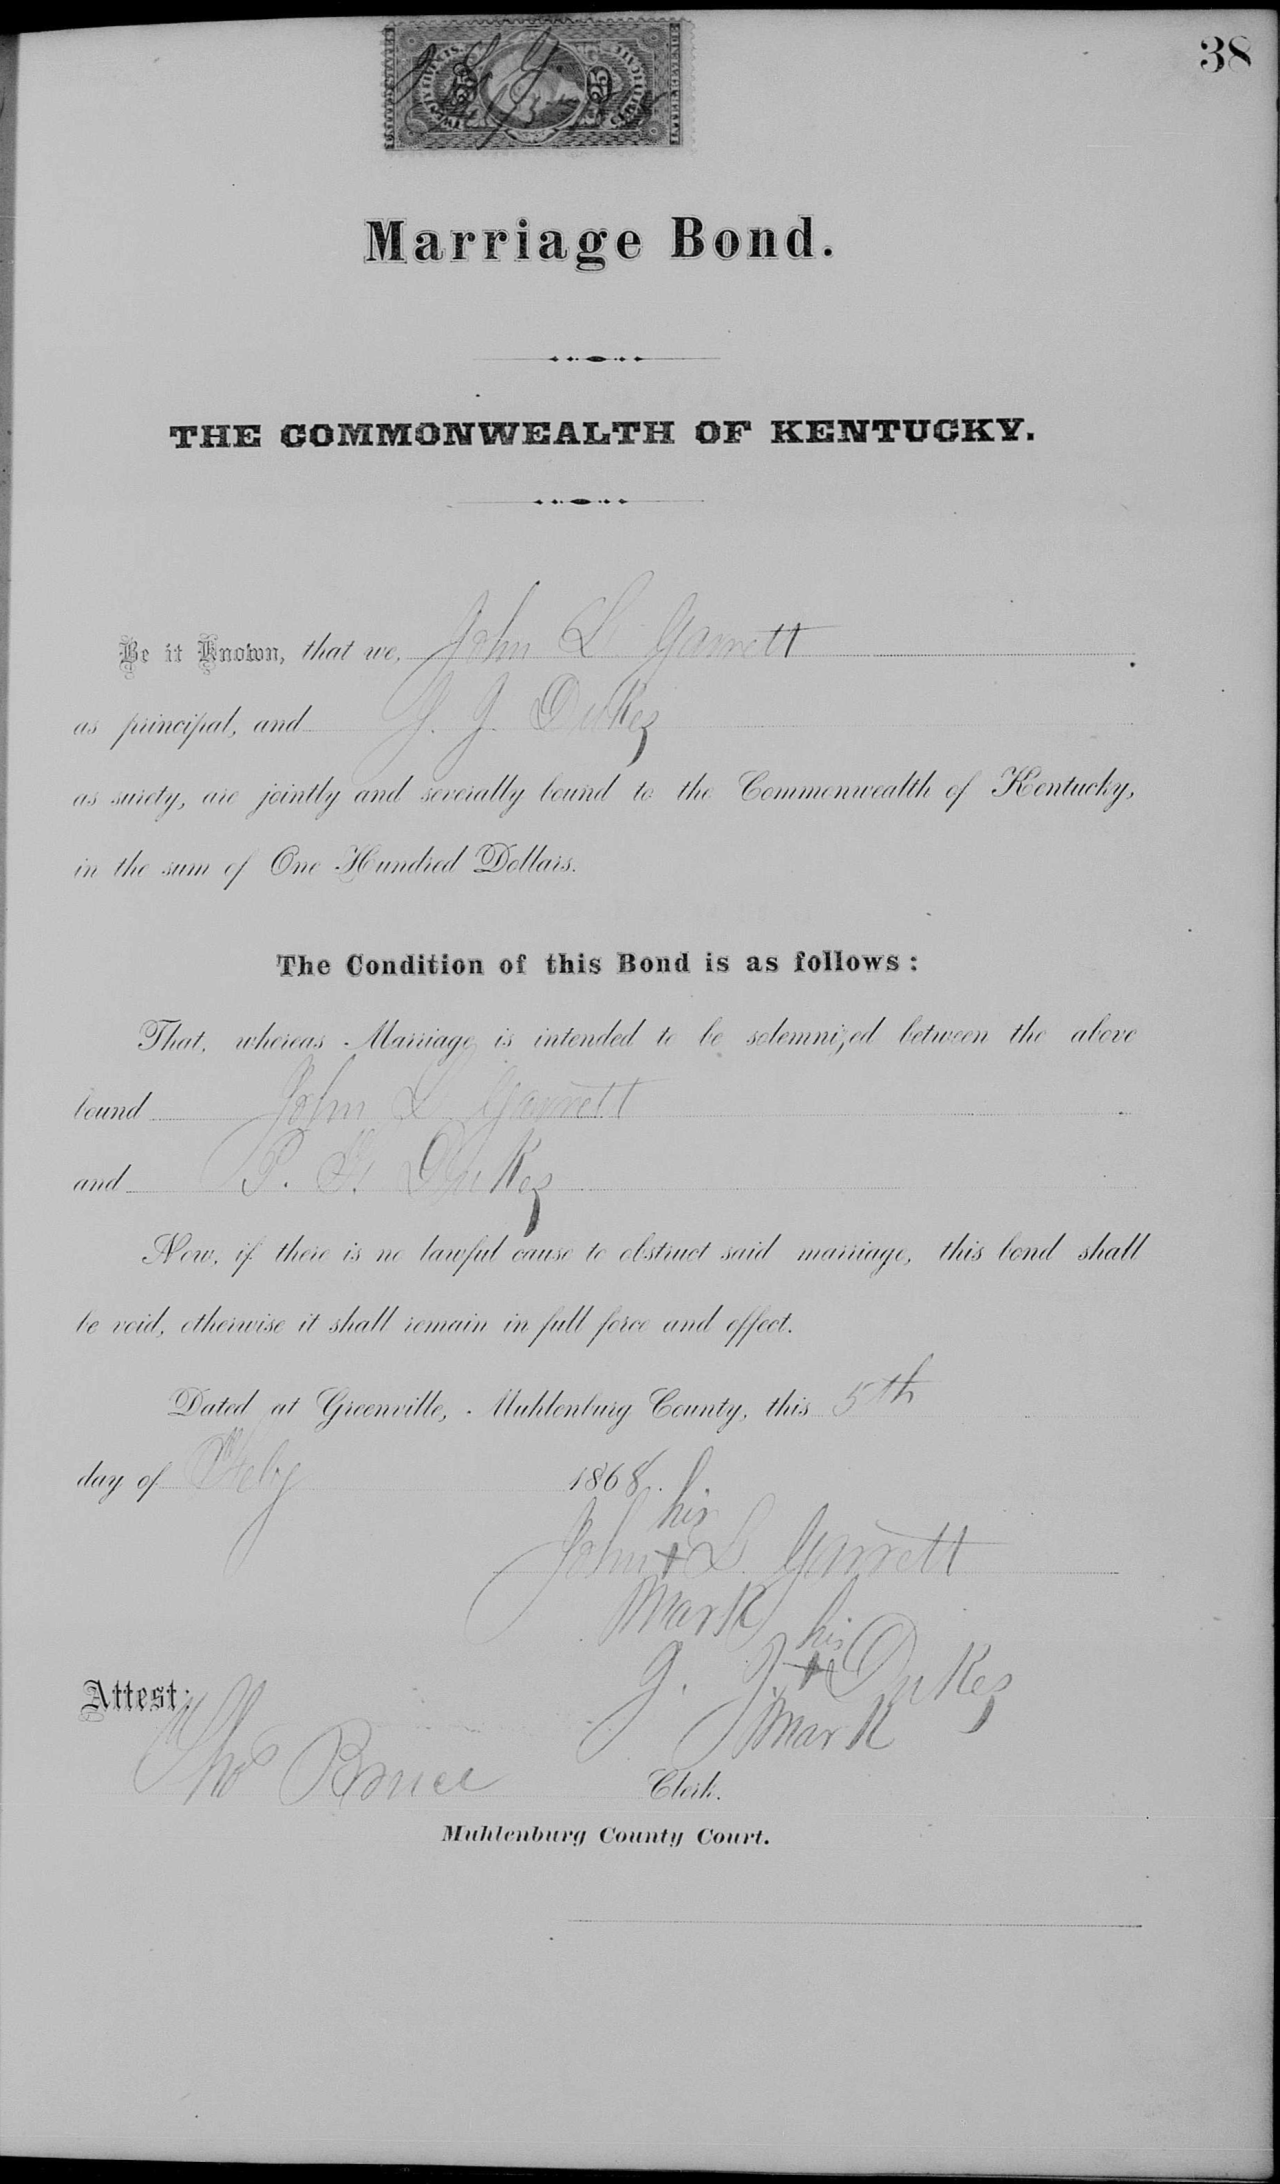 38
25 25
Marriage Bond.
THE COMMONWEALTH OF KENTUCKY.
Be it Known, that we, John L. Garrett
as principal, and J. J. Dukes
as surety, are jointly and severally bound to the Commonwealth of Kentucky,
in the sum of One Hundred Dollars.
The Condition of this Bond is as follows:
That, whereas Marriage is intended to be solemnized between the above
bound John L Garrett
and P. F. Dukes
Now, if there is no lawful cause to obstruct said marriage, this bond shall
be void, otherwise it shall remain in full force and effect.
Dated at Greenville, Muhlenburg County, this 5th
day of Feby 1868.
his
John + L. Garrett
mark
his
J. J. + Dukes
mark
Attest;
Thos Bruce Clerk.
Muhlenburg County Court.